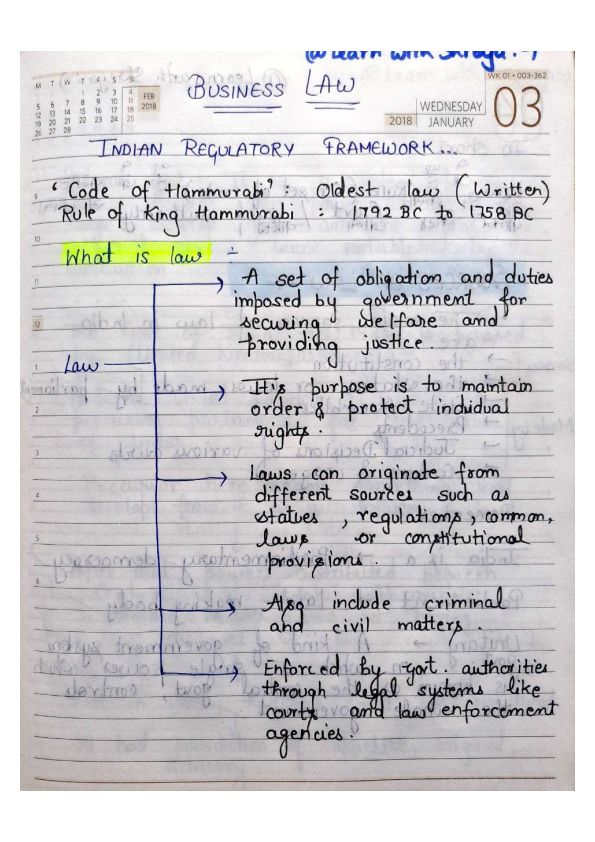 @Learn with Shreya :-)
M T W T F S S
1 2 3 4
5 6 7 8 9 10 11
12 13 14 15 16 17 18
19 20 21 22 23 24 25
26 27 28
FEB
2018
BUSINESS LAW
WK 01 • 003-362
WEDNESDAY
2018 JANUARY
03
INDIAN REGULATORY FRAMEWORK...
9
'Code of Hammurabi' : Oldest law (Written)
Rule of King Hammurabi : 1792 BC to 1758 BC
10
What is law :-
11
A set of obligation and duties
imposed by government for
12
securing welfare and
providing justice.
1
Law
It's purpose is to maintain
2
order & protect individual
rights.
3
Laws can originate from
4
different sources such as
statues, regulations, common,
5
laws or constitutional
provisions.
6
Also include criminal
and civil matters.
Enforced by govt. authorities
through legal systems like
courts and law enforcement
agencies.